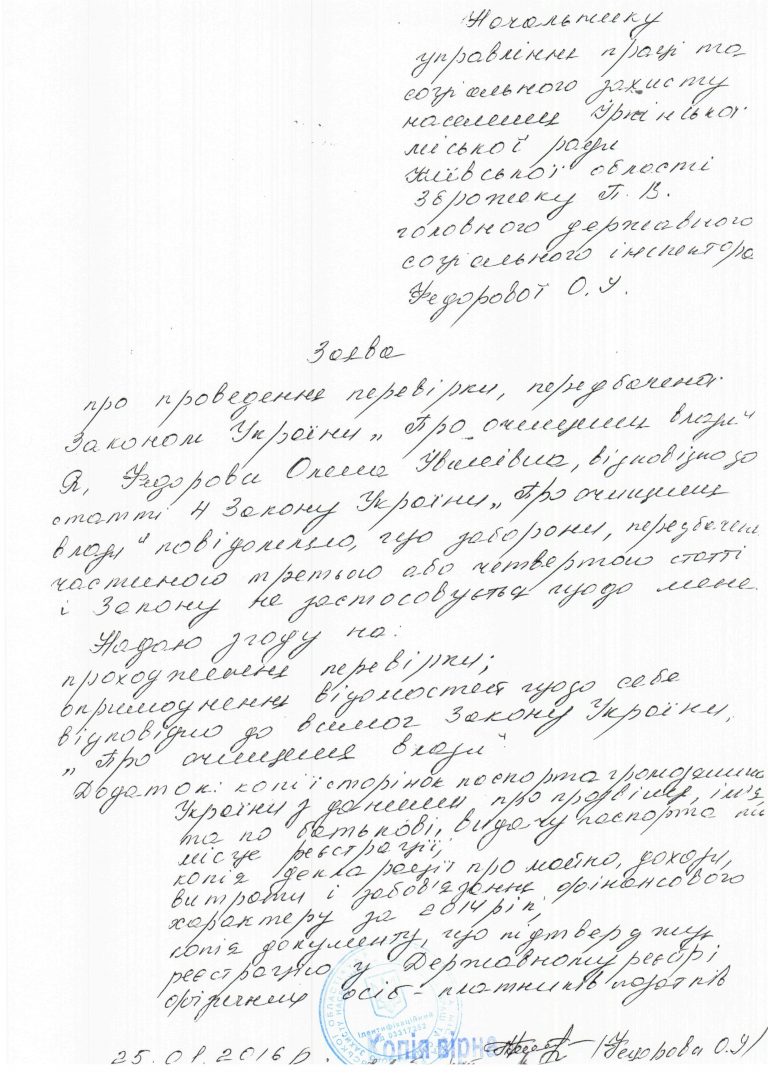 Начальнику
управління праці та
соціального захисту
населення Ірпінської
міської ради
Київської області
Зброжеку П. В.
головного державного
соціального інспектора
Федорової О.Я.
Заява
про проведення перевірки, передбаченої
Законом України „Про очищення влади"
Я, Федорова Олена, відповідно до
статті 4 Закону України „Про очищення
влади" повідомляю, що заборони, передбачені
частиною третьою або четвертою статті
1 Закону не застосовується щодо мене.
Надаю згоду на:
проходження перевірки;
оприлюднення відомостей щодо себе
відповідно до вимог Закону України,
„Про очищення влади"
Додаток: копії сторінок паспорта громадянина
України з даними, про прізвище, ім'я,
та по батькові, видачу паспорта та
місце реєстрації;
копія декларації про майно, доходи,
витрати і зобов'язання фінансового
характеру за 2014 рік;
копія документу, що підтверджує
реєстрацію у Державному реєстрі
фізичних осіб – платників податків
Ідентифікаційний
Копія вірна
25.01.2016 р. (Федорова О.Я)